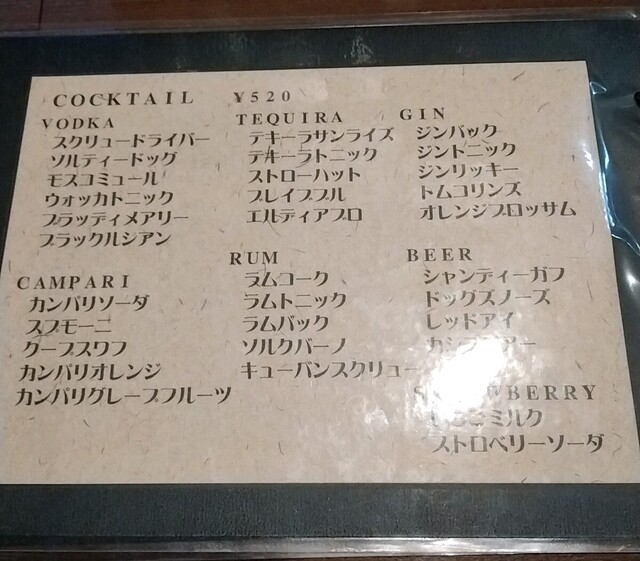 COCKTAIL ¥520
VODKA
スクリュードライバー
ソルティードッグ
モスコミュール
ウォッカトニック
ブラッディメアリー
ブラックルシアン
TEQUIRA
テキーラサンライズ
テキーラトニック
ストローハット
ブレイブブル
エルディアブロ
GIN
ジンバック
ジントニック
ジンリッキー
トムコリンズ
オレンジブロッサム
CAMPARI
カンパリソーダ
スプモーニ
クープスワフ
カンパリオレンジ
カンパリグレープフルーツ
RUM
ラムコーク
ラムトニック
ラムバック
ソルクバーノ
キューバンスクリュー
BEER
シャンディーガフ
ドッグズノーズ
レッドアイ
いちごミルク
ストロベリーソーダ